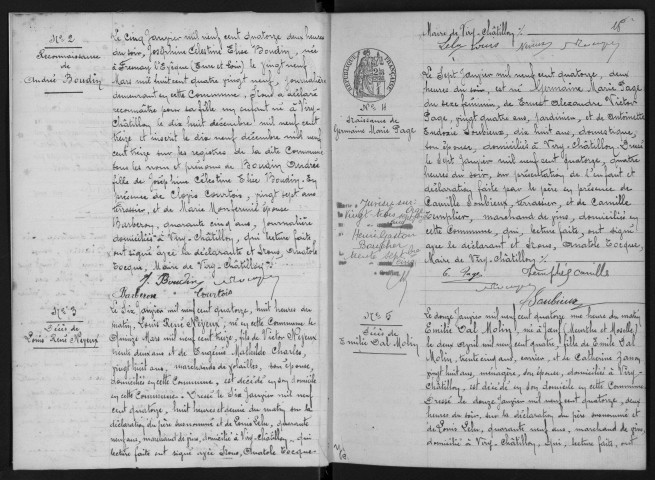 N° 2
Reconnaissance
de
André Boudin
Le cinq Janvier mil neuf cent quatorze deux heures
du soir, Joséphine Célestine Elise Boudin, née
à Fresnay l'Evêque (Eure et Loir) le vingt neuf
Mars mil huit cent quatre vingt neuf, journalière
demeurant en cette Commune, Nous a déclaré
reconnaître pour sa fille un enfant né à Viry-
Châtillon le dix huit décembre mil neuf cent
treize et inscrit le dix neuf décembre mil neuf
cent treize sur les registres de la dite Commune
sous les nom et prénoms de Boudin Andrée
fille de Joséphine Célestine Elise Boudin. En
présence de Clovis Courtois, vingt sept ans
terrassier, et de Marie Monfermé épouse
Barberon, quarante cinq ans, journalière
domiciliés à Viry-Châtillon, qui lecture faite
ont signé avec la déclarante et Nous, Anatole
Cocque, Maire de Viry-Châtillon
J. Boudin
Barberon Courtois
N° 3
Décès de
Louis René
Le dix Janvier mil neuf cent quatorze, huit heures du
matin, Louis René né en cette Commune le
quinze Mars mil neuf cent treize, fils de Victor
trente deux ans et de Eugénie Mathilde Charles,
vingt huit ans, marchands de volailles, son épouse,
domiciliés en cette Commune, est décédé en son domicile
en cette Commune. Dressé le dix Janvier mil neuf
cent quatorze, huit heures et demie du matin sur la
déclaration du père susnommé et de Louis Lelu, quarante
neuf ans, marchand de vins, domicilié à Viry-Châtillon, qui
lecture faite ont signé avec Nous, Anatole Cocque
Maire de Viry-Châtillon
18
RÉPUBLIQUE FRANÇAISE
N° 4
Naissance de
Germaine Marie Page
Le Sept Janvier mil neuf cent quatorze, deux
heures du soir, est né Germaine Marie Page
du sexe féminin, de Ernest Alexandre Victor
Page, vingt quatre ans, Jardinier, et de Antoinette
dix huit ans, domestique,
son épouse, domiciliés à Viry-Châtillon. Dressé
le Sept Janvier mil neuf cent quatorze, quatre
heures du soir, sur présentation de l'enfant et
déclaration faite par le père en présence de
Camille terrassier, et de Camille
Templier, marchand de vins, domiciliés en
cette Commune, qui, lecture faite, ont signé
avec le déclarant et Nous, Anatole Cocque,
Maire de Viry-Châtillon
E. Page
N° 5
Décès de
Emilie Dal Molin
Le douze Janvier mil neuf cent quatorze une heure du matin
Emilie Dal Molin, née à (Meurthe et Moselle)
le deux Avril mil neuf cent quatre, fille de Emile Dal
Molin, trente cinq ans, ouvrier, et de Catherine
vingt huit ans, ménagère, son épouse, domiciliés à Viry-
Châtillon, est décédé en son domicile en cette Commune
Dressé le douze Janvier mil neuf cent quatorze, deux
heures du soir, sur la déclaration du père susnommé et
de Louis Lelu, quarante neuf ans, marchand de vins,
domicilié à Viry-Châtillon, qui, lecture faite, ont